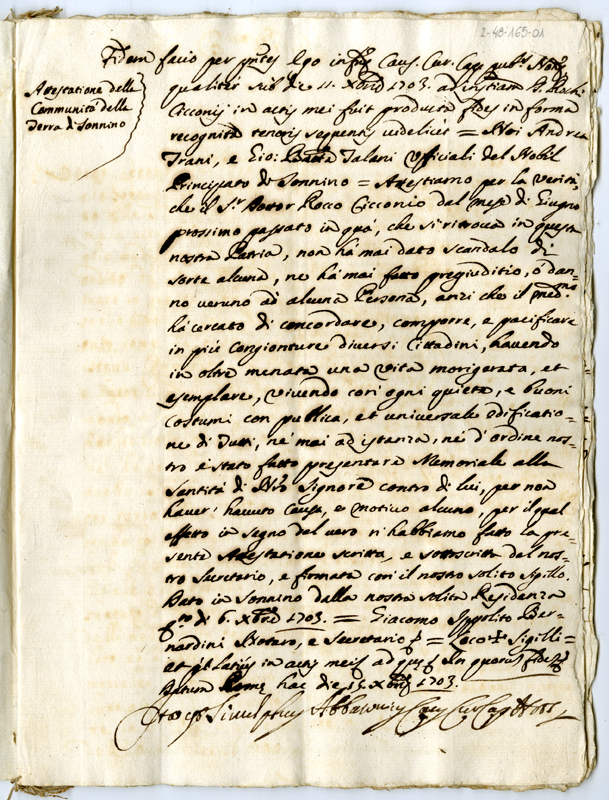 2-48-165-01
Fidem facio per pntes Ego infrus Caus. Cur. Cap. pubs Nots
qualiter sub die 11. Xbris 1703. ad instiam D. Rochi
Attestatione della
Communità della
Terra di Sonnino
Cicconij in actis mei fuit producta fides in forma
recognita tenoris sequentis videlicet = Noi Andrea
Trani, e Gio: Batta Talani Officiali del Nobil
Principato di Sonnino = Attestiamo per la verità,
che il Sr. Dottor Rocco Cicconio dal mese di Giugno
prossimo passato in quà, che si ritrova in questa
nostra Patria, non hà mai dato scandalo di
sorte alcuna, ne hà mai fatto pregiuditio, ò dan=
no veruno ad alcuna Persona, anzi che il medmo
hà cercato di concordare, comporre, e pacificare
in più congionture diversi Cittadini, havendo
in oltre menata una vita morigerata, et
esemplare, vivendo con ogni quiete, e buoni
costumi con publica, et universale edificatio=
ne di Tutti, ne mai ad istanza, ne d'ordine nos=
tro è stato fatto presentare Memoriale alla
Santità di Nro Signore contro di lui, per non
haver havuto causa, e motivo alcuno, per il qual
effetto in segno del vero n'habbiamo fatto la pre=
sente Attestatione scritta, e sottoscritta dal nos=
tro Secretario, e firmata con il nostro solito Sigillo.
Dato in Sonnino dalla nostra solita Residenza
di 6. Xbre 1703. = Giacomo Ippolito Ber=
nardini Notaro, e Secretario = Loco + Sigilli =
et latius in actis meis ad quos In quorum fidem
Datum Rome hac die 15 Xbris 1703.